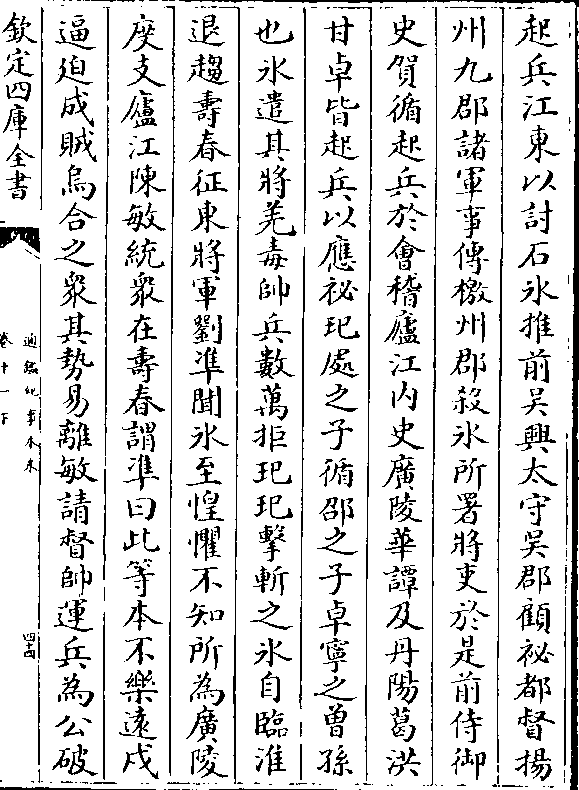 起兵江東以討石氷推前吳興太守吳郡顧祕都督揚
州九郡諸軍事傳檄州郡殺氷所署將吏於是前侍御
史賀循起兵於會稽廬江内史廣陵華譚及丹陽葛洪
甘卓皆起兵以應祕玘處之子循邵之子卓寧之曾孫
也氷遣其將羌毒帥兵數萬拒玘玘擊斬之氷自臨淮
退趨壽春征東將軍劉準聞氷至惶懼不知所為廣陵
度支廬江陳敏統衆在壽春謂準曰此等本不樂遠戍
逼迫成賊烏合之衆其勢易離敏請督帥運兵為公破
欽定四庫全書
通鑑紀事本末
卷十一下
四十四